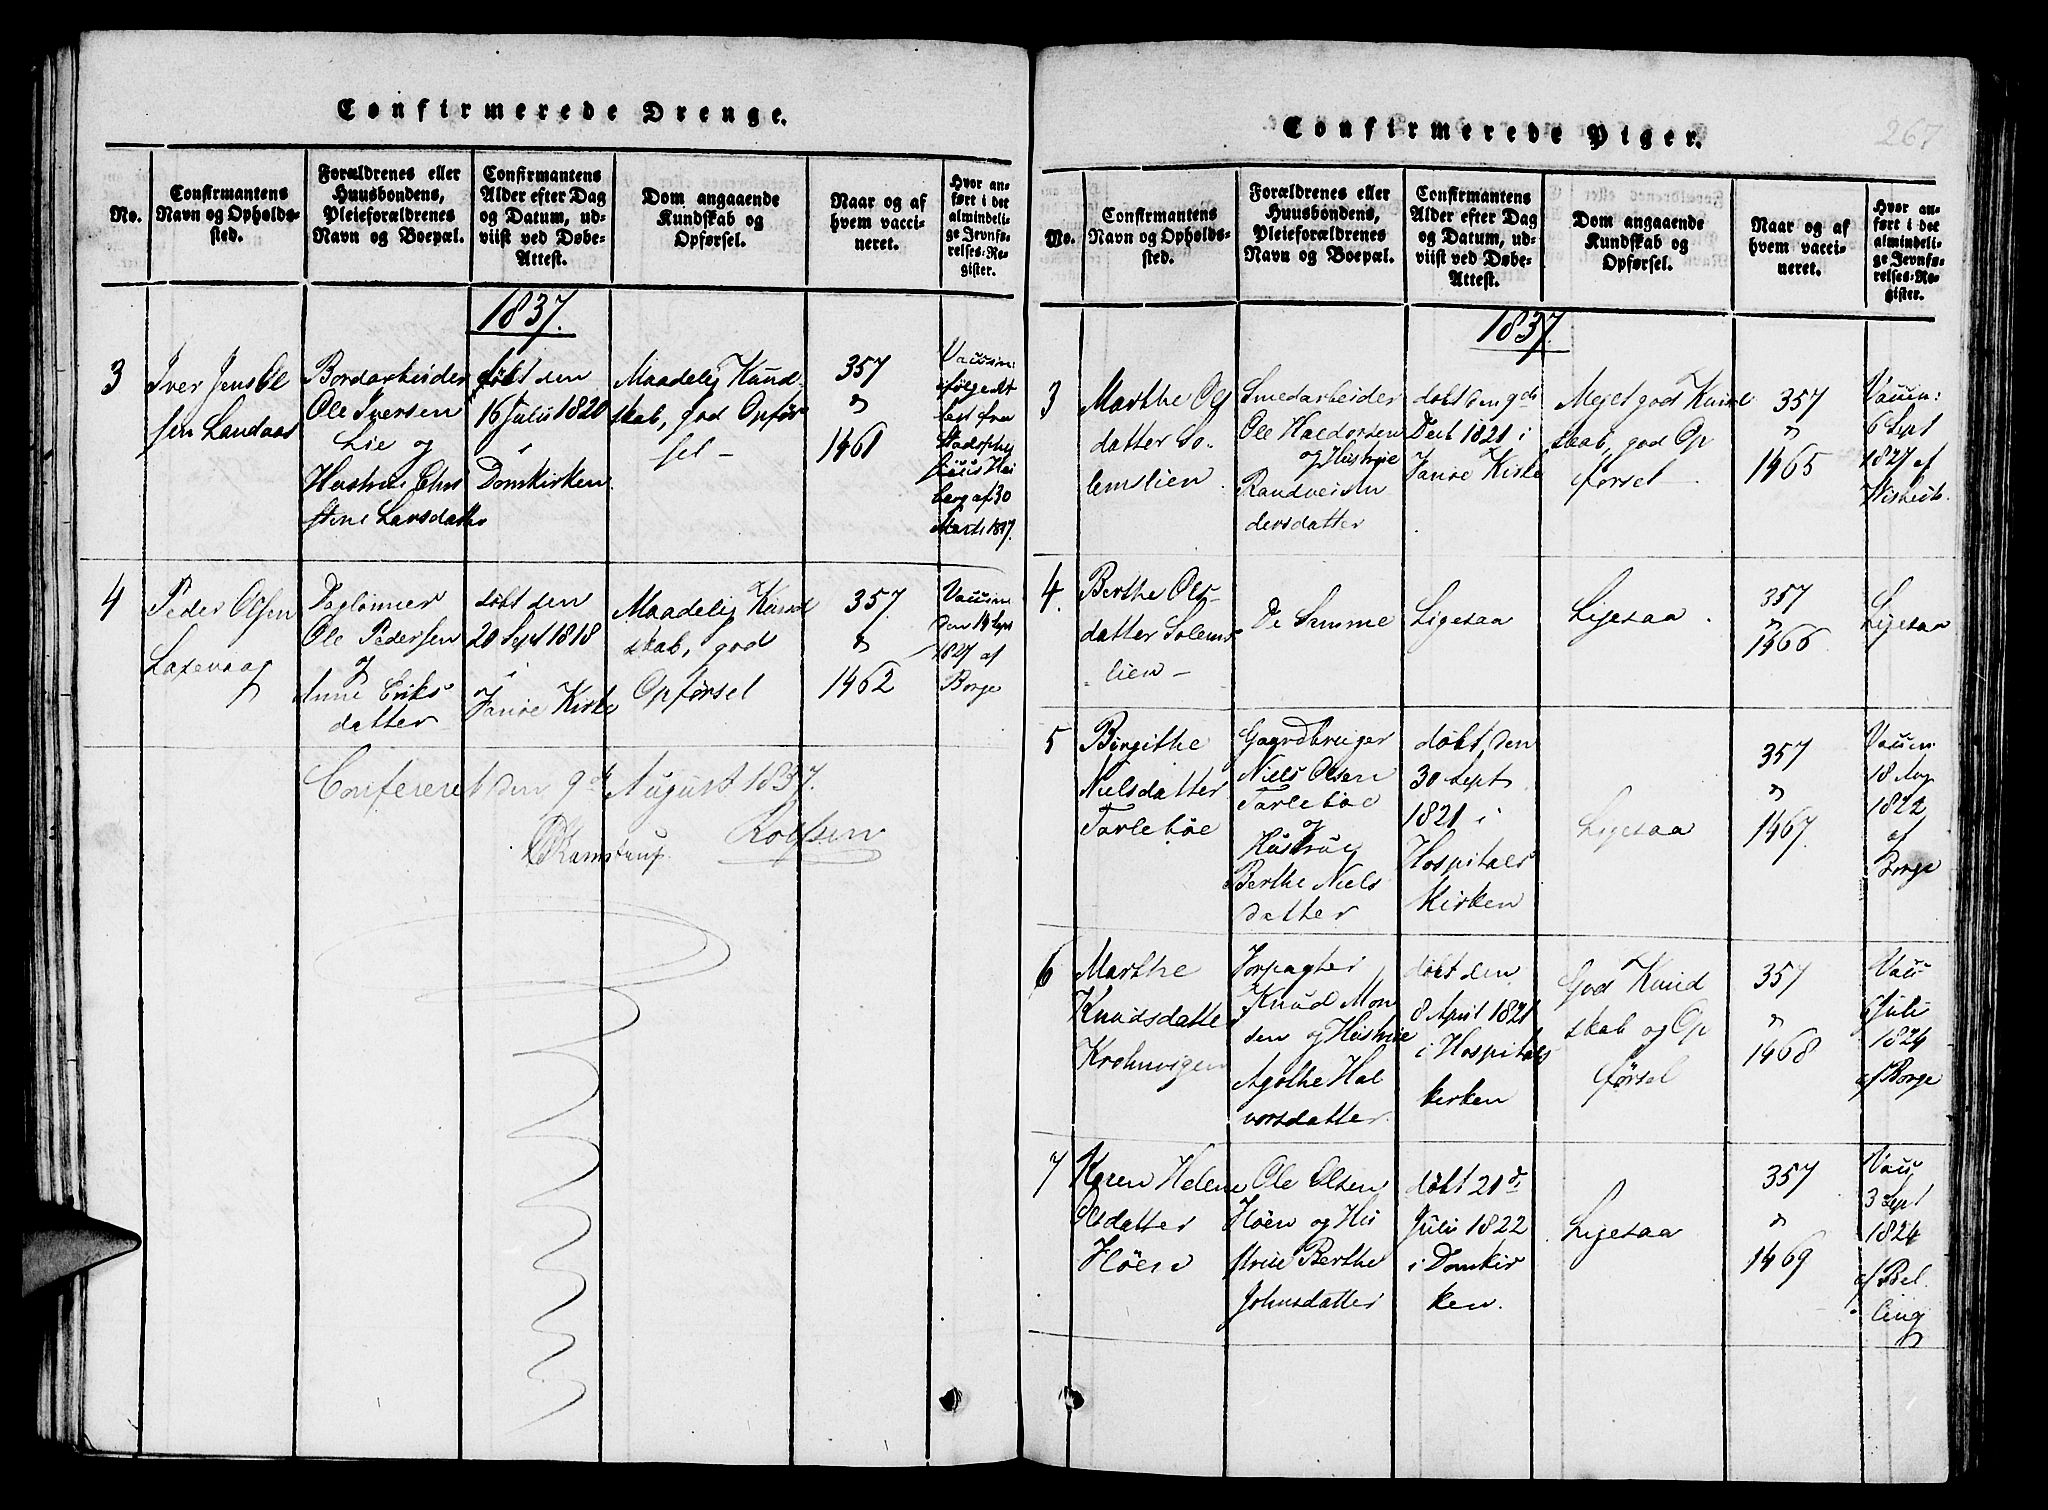 Confirmerede Drenge.
No.
Confirmantens
Navn og Opholds-
sted.
Forældrenes eller
Huusbondens,
Pleieforældrenes
Navn og Boepæl.
Confirmantens
Alder efter Dag
og Datum, ud-
viist ved Døbe-
Attest.
Dom angaaende
Kundskab og
Opførsel.
Naar og af
hvem vacci-
neret.
Hvor an-
ført i det
almindeli-
ge Jevnfø-
relses-Re-
gister.
1837.
3
Iver Jens
sen Landaas
Bordarbeider
Ole Iversen
Lie og
Hustrue
stine Larsdatter
døbt den
16 Julii 1820
i
Domkirken.
Maadelig Kund-
skab, god Opfør
sel -
357
1461
af 30
4
Peder Olsen
Laxevaag
Daglønner
Ole Pedersen
og
Anne Eriks
datter
døbt den
20 Sept 1818
i
Kirke
Maadelig Kund
skab, god
Opførsel
357.
1462
Vaccin
den 14 Sept
1827 af
Borge
Confereret den 9de August 1837.
Kamstrup
Rolfsen
Confirmerede Piger.
267
No.
Confirmantens
Navn og Opholds-
sted.
Forældrenes eller
Huusbondens,
Pleieforældrenes
Navn og Boepæl.
Confirmantens
Alder efter Dag
og Datum, ud-
viist ved Døbe-
Attest.
Dom angaaende
Kundskab og
Opførsel.
Naar og af
hvem vacci-
neret.
Hvor an-
ført i det
almindeli-
ge Jevnfø-
relses-Re-
gister.
1837.
3
Marthe Ols
datter So-
lemslien
Smedarbeider
Ole Haldorsen
og Hustrue
Randvei An
dersdatter
døbt den 9de
Dect 1821 i
Kirke
Meget god Kund
skab, god Op
førsel -
357
1465
Vaccin:
6 Sept
1827 af
4.
Berthe Ols-
datter Solems
lien -
De Samme
Ligesaa
Ligesaa.
357
1466
Ligesaa
5
Birgithe
Nielsdatter
Tarlebøe
Gaardbruger
Niels Olsen
Tarlebøe
og
Hustrue
Berthe Niels
datter
døbt, den
30 Sept
1821 i
Hospitals
Kirken
Ligesaa
357
1467.
Vaccin.
18 Aug
1822
af
Borge
6
Marthe
Knudsdatter
Krohnvigen
Forpagter
Knud Mon
sen og Hustrue
Agothe Hal
vorsdatter.
døbt den
8 April 1821
i Hospitals
kirken
God Kund
skab og Op
førsel
357
1468
Vacc
6 Juli
1824
af Borge
7
Karen Helene
Olsdatter
Fløen
Ole Olsen
Fløen og Hu
strue Berthe
Johnsdatter
døbt 21de
Juli 1822
i Domkir
ken.
Ligesaa
357
1469
Vacc
3 Sept
1824
af Bel
ling